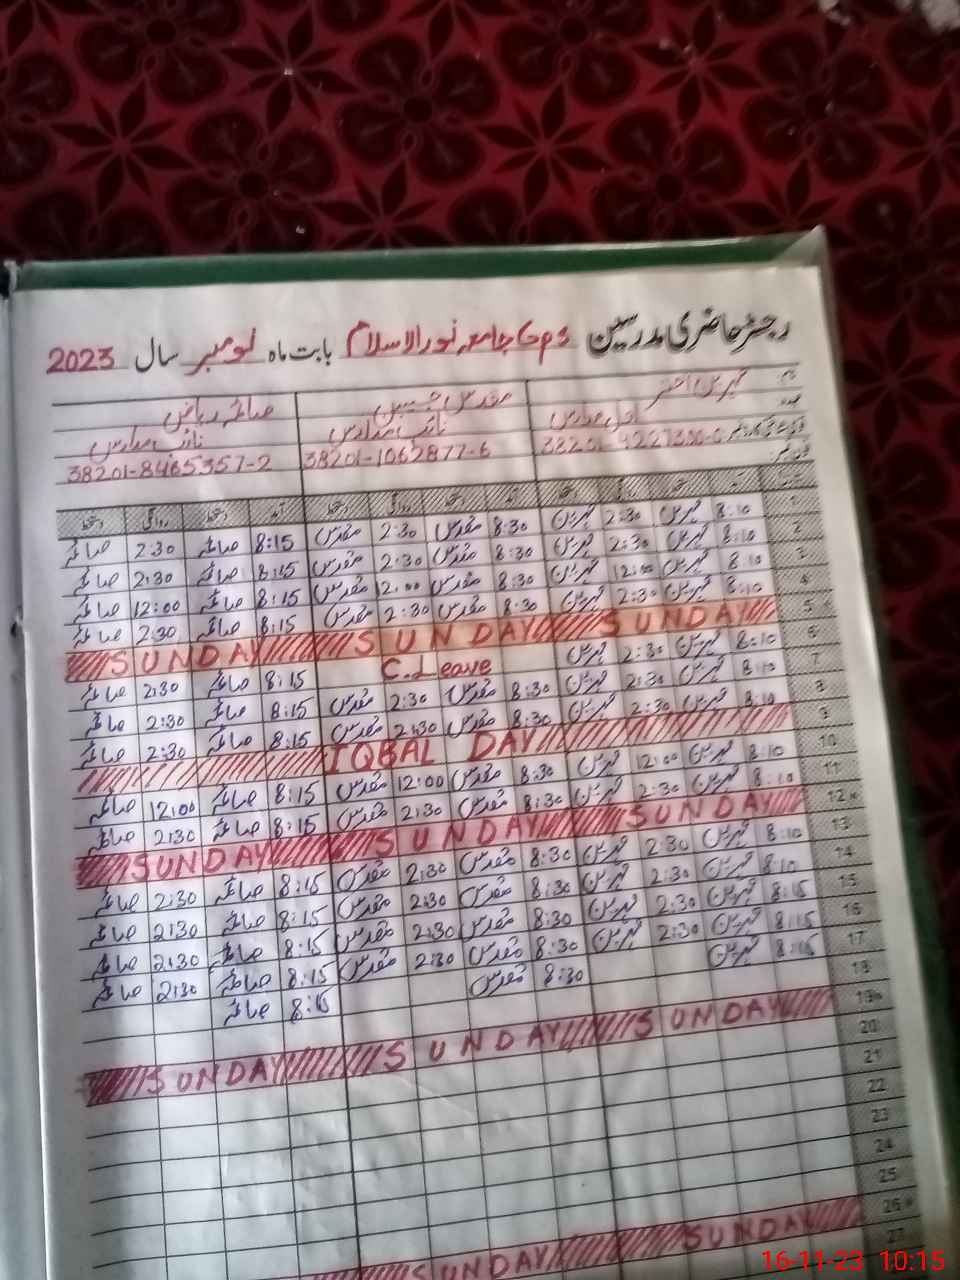 رجسٹر حاضری مدرسین GPS جامعہ نورالاسلام بابت ماہ نومبر سال 2023
نام مہرین اختر مقدس جبین صائمہ ریاض
عہدہ اول مدرس نائب مدرس نائب مدرس
38201-1062877-6 38201-8465357-2
آمد دستخط روانگی دستخط آمد دستخط روانگی دستخط آمد دستخط روانگی دستخط
1 8:10 مہرین 2:30 مہرین 8:30 مقدس 2:30 مقدس 8:15 صائمہ 2:30 صائمہ
2 8:10 مہرین 2:30 مہرین 8:30 مقدس 2:30 مقدس 8:15 صائمہ 2:30 صائمہ
3 8:10 مہرین 12:00 مہرین 8:30 مقدس 12:00 مقدس 8:15 صائمہ 12:00 صائمہ
4 8:10 مہرین 2:30 مہرین 8:30 مقدس 2:30 مقدس 8:15 صائمہ 2:30 صائمہ
5 SUNDAY SUNDAY SUNDAY
6 8:10 مہرین 2:30 مہرین C.Leave 8:15 صائمہ 2:30 صائمہ
7 8:10 مہرین 2:30 مہرین 8:30 مقدس 2:30 مقدس 8:15 صائمہ 2:30 صائمہ
8 8:10 مہرین 2:30 مہرین 8:30 مقدس 2:30 مقدس 8:15 صائمہ 2:30 صائمہ
9 IQBAL DAY
10 8:10 مہرین 12:00 مہرین 8:30 مقدس 12:00 مقدس 8:15 صائمہ 12:00 صائمہ
11 8:10 مہرین 2:30 مہرین 8:30 مقدس 2:30 مقدس 8:15 صائمہ 2:30 صائمہ
12 SUNDAY SUNDAY SUNDAY
13 8:10 مہرین 2:30 مہرین 8:30 مقدس 2:30 مقدس 8:15 صائمہ 2:30 صائمہ
14 8:10 مہرین 2:30 مہرین 8:30 مقدس 2:30 مقدس 8:15 صائمہ 2:30 صائمہ
15 8:15 مہرین 2:30 مہرین 8:30 مقدس 2:30 مقدس 8:15 صائمہ 2:30 صائمہ
16 8:15 مہرین 2:30 مہرین 8:30 مقدس 2:30 مقدس 8:15 صائمہ 2:30 صائمہ
17 8:15 مہرین 8:30 مقدس 8:15 صائمہ
18
19 SUNDAY SUNDAY SUNDAY
20
21
22
23
24
25
26 SUNDAY SUNDAY
27
16-11-23 10:15